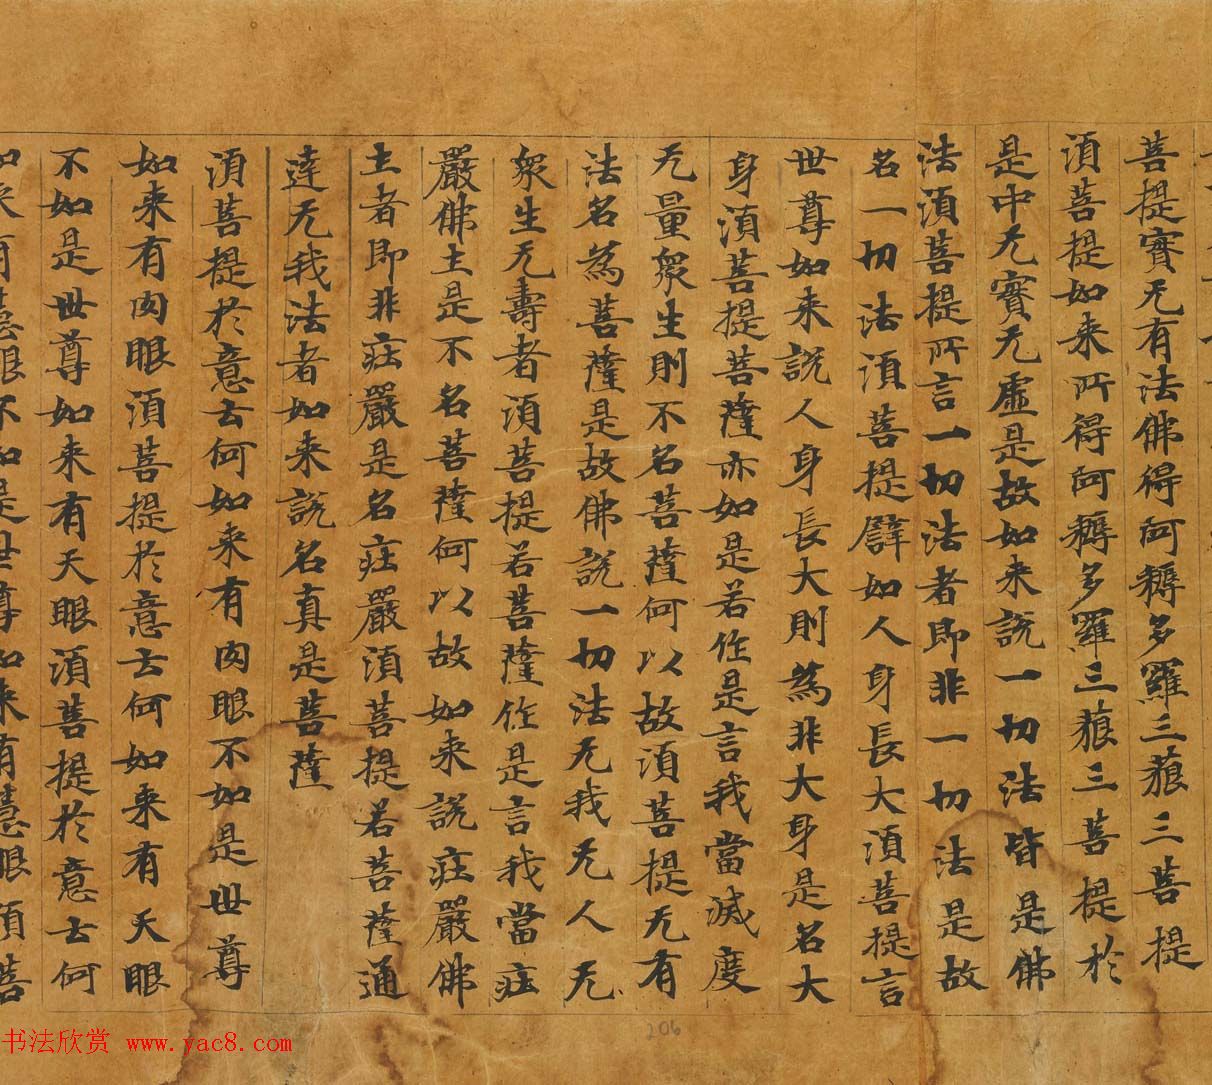 菩提實无有法佛得阿耨多羅三藐三菩提
湏菩提如来所得阿耨多羅三藐三菩提於
是中无實无虛是故如来說一切法皆是佛
法湏菩提所言一切法者即非一切法是故
名一切法湏菩提譬如人身長大湏菩提言
世尊如来說人身長大則為非大身是名大
身湏菩提菩薩亦如是若作是言我當滅度
无量衆生則不名菩薩何以故湏菩提无有
法名為菩薩是故佛說一切法无我无人无
衆生无壽者湏菩提若菩薩作是言我當庄
嚴佛土是不名菩薩何以故如来說庄嚴佛
土者即非庄嚴是名庄嚴湏菩提若菩薩通
達无我法者如来說名真是菩薩
湏菩提於意云何如来有肉眼不如是世尊
如来有肉眼湏菩提於意云何如来有天眼
不如是世尊如来有天眼湏菩提於意云何
如来有慧眼不如是世尊如来有慧眼湏菩
206
书法欣赏 www.yac8.com